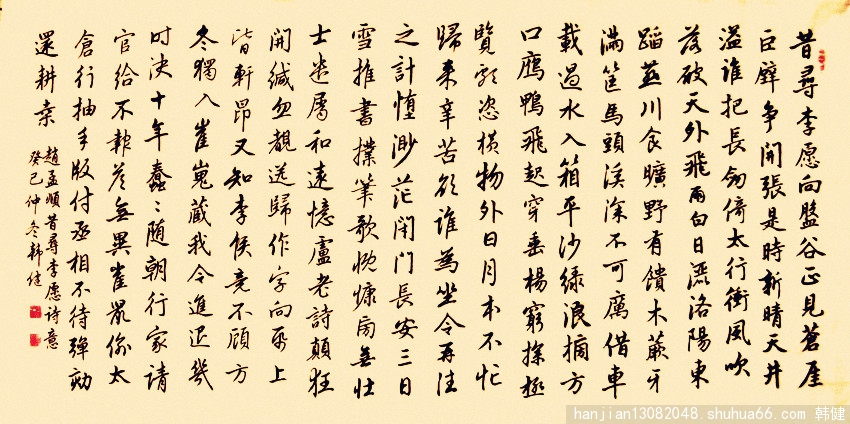 昔尋李愿向盤谷正見蒼崖
巨壁争開張是時新晴天井
溢誰把長劍倚太行衝風吹
落破天外飛雨白日灑洛陽東
蹈燕川食曠野有饋木蕨牙
滿筐馬頭溪深不可厲借車
載過水入箱平沙緑浪搒方
口鴈鴨飛起穿垂楊窮探極
覽頗恣橫物外日月本不忙
歸来辛苦欲誰為坐令再往
之計墮渺茫閉門長安三日
雪推書撲筆歌慨慷旁無壮
士遣属和遠憶盧老詩顛狂
開緘忽覩送歸作字向帋上
皆軒昂又知李侯竟不顧方
冬獨入崔嵬藏我今進退幾
时决十年蠢〻随朝行家請
官給不報答無異雀鼠偷太
倉行抽手版付丞相不待彈劾
還耕桑
趙孟頫昔尋李愿诗意
癸巳仲冬韩健
hanjian13082048.shuhua66.com 韩健